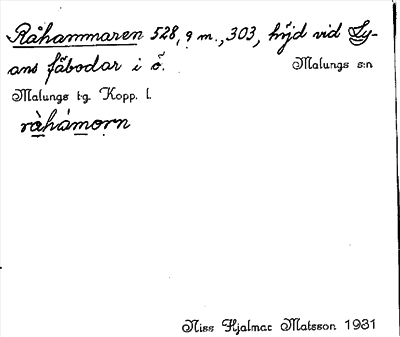 Råhammaren 528,9 m., 303, höjd vid Ly-
ans fäbodar i ö. Malungs s:n
Malungs t-g. Kopp. l.
ràhámorn
Niss Hjalmar Matsson 1931